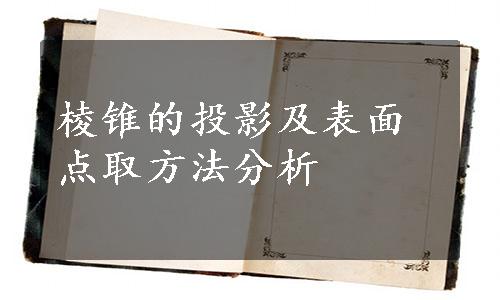 棱锥的投影及表面
点取方法分析